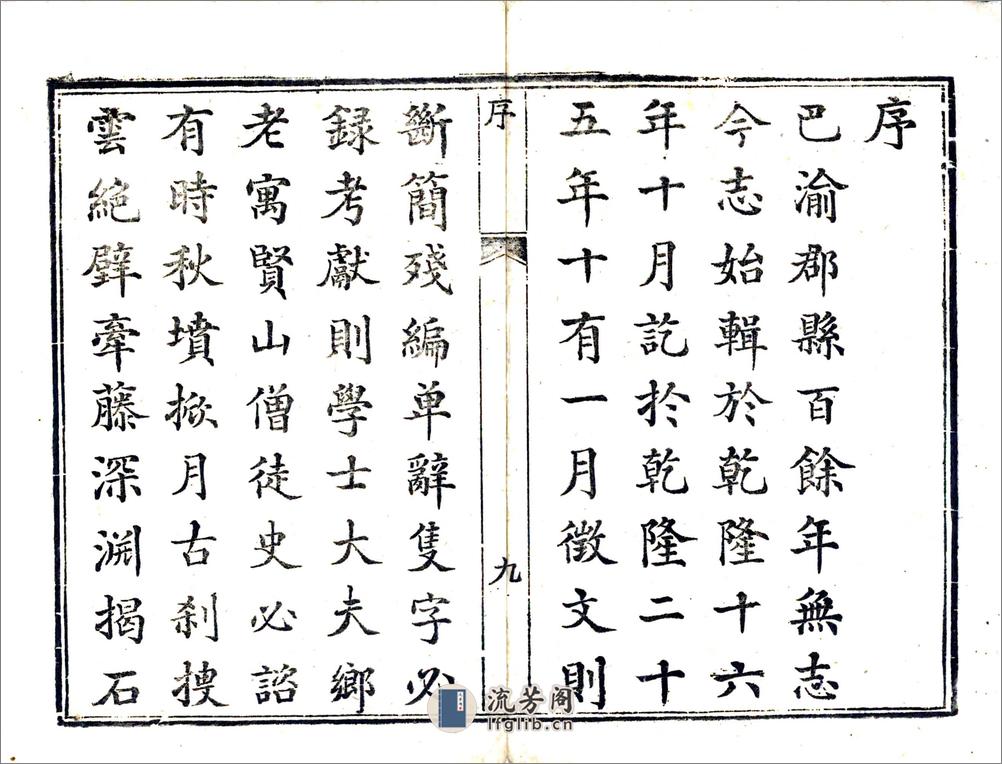 序
巴渝郡縣百餘年無志
今志始輯於乾隆十六
年十月訖扵乾隆二十
五年十有一月徵文則
序
九
斷簡殘編单辭隻字必
録考獻則學士大夫鄉
老寓賢山僧徒史必諮
有時秋墳掀月古刹捜
雲絶壁牽藤深渊揭石
流芳阁
lfglib.cn